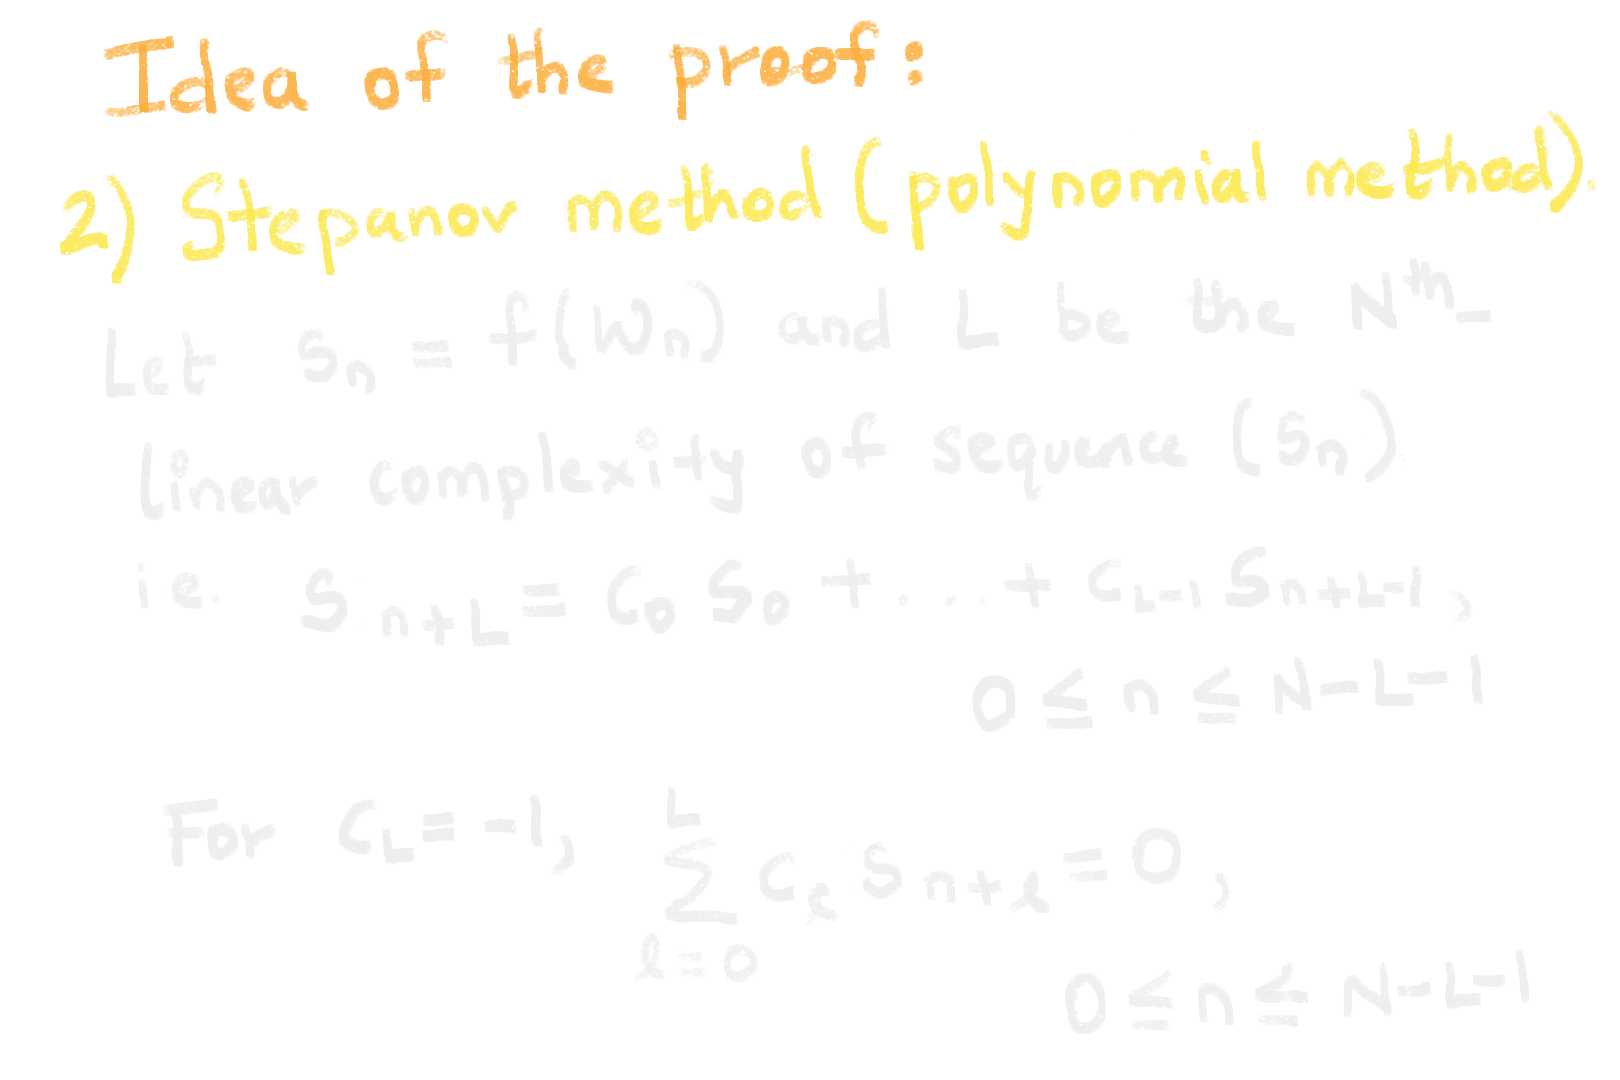 Idea of the proof:
2) Stepanov method (polynomial method).
Let Sₙ = f(Wₙ) and L be the Nᵗʰ-
linear complexity of sequence (Sₙ)
i.e. Sₙ₊L = C₀ S₀ + . . . + C_{L-1} S_{n+L-1},
0 ≤ n ≤ N-L-1
For C_L = -1, ∑_{ℓ=0}^{L} C_ℓ S_{n+ℓ} = 0,
0 ≤ n ≤ N-L-1